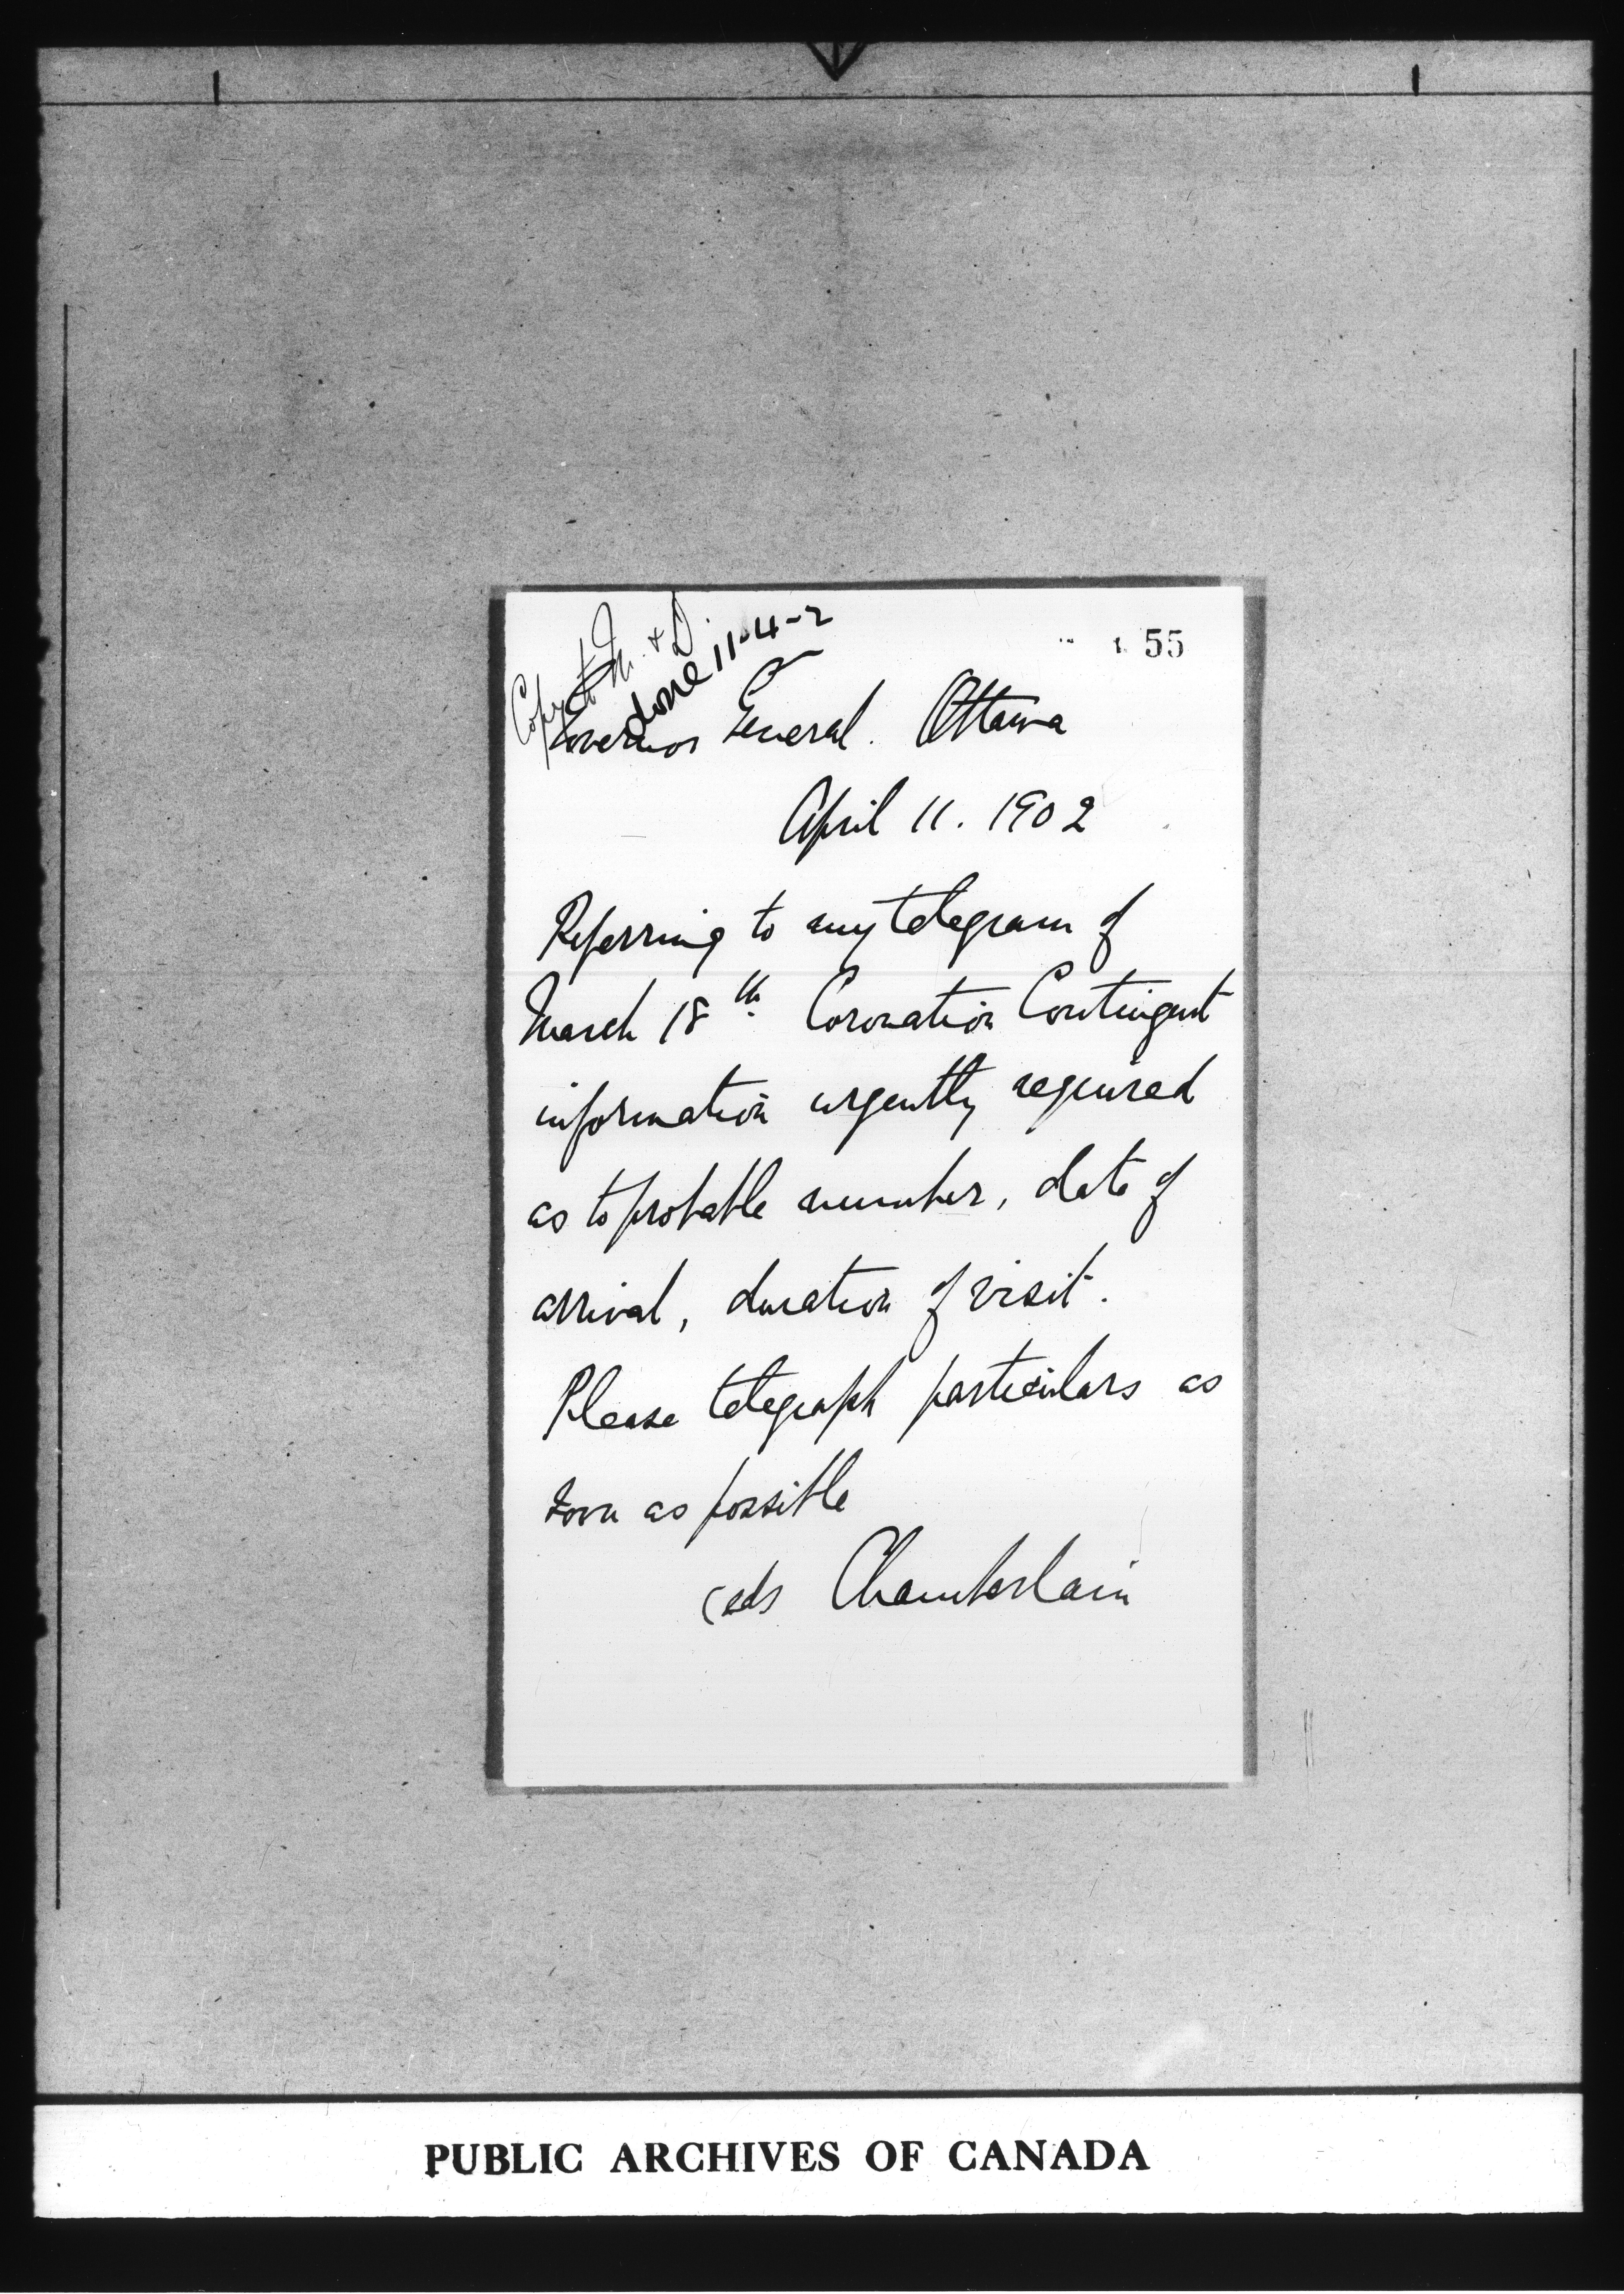 Copy to M. & D.
done 11-4-2
55
Governor General. Ottawa
April 11. 1902
Referring to my telegram of
March 18th Coronation Contingent
information urgently required
as to probable number, date of
arrival, duration of visit.
Please telegraph particulars as
soon as possible
Chamberlain
PUBLIC ARCHIVES OF CANADA